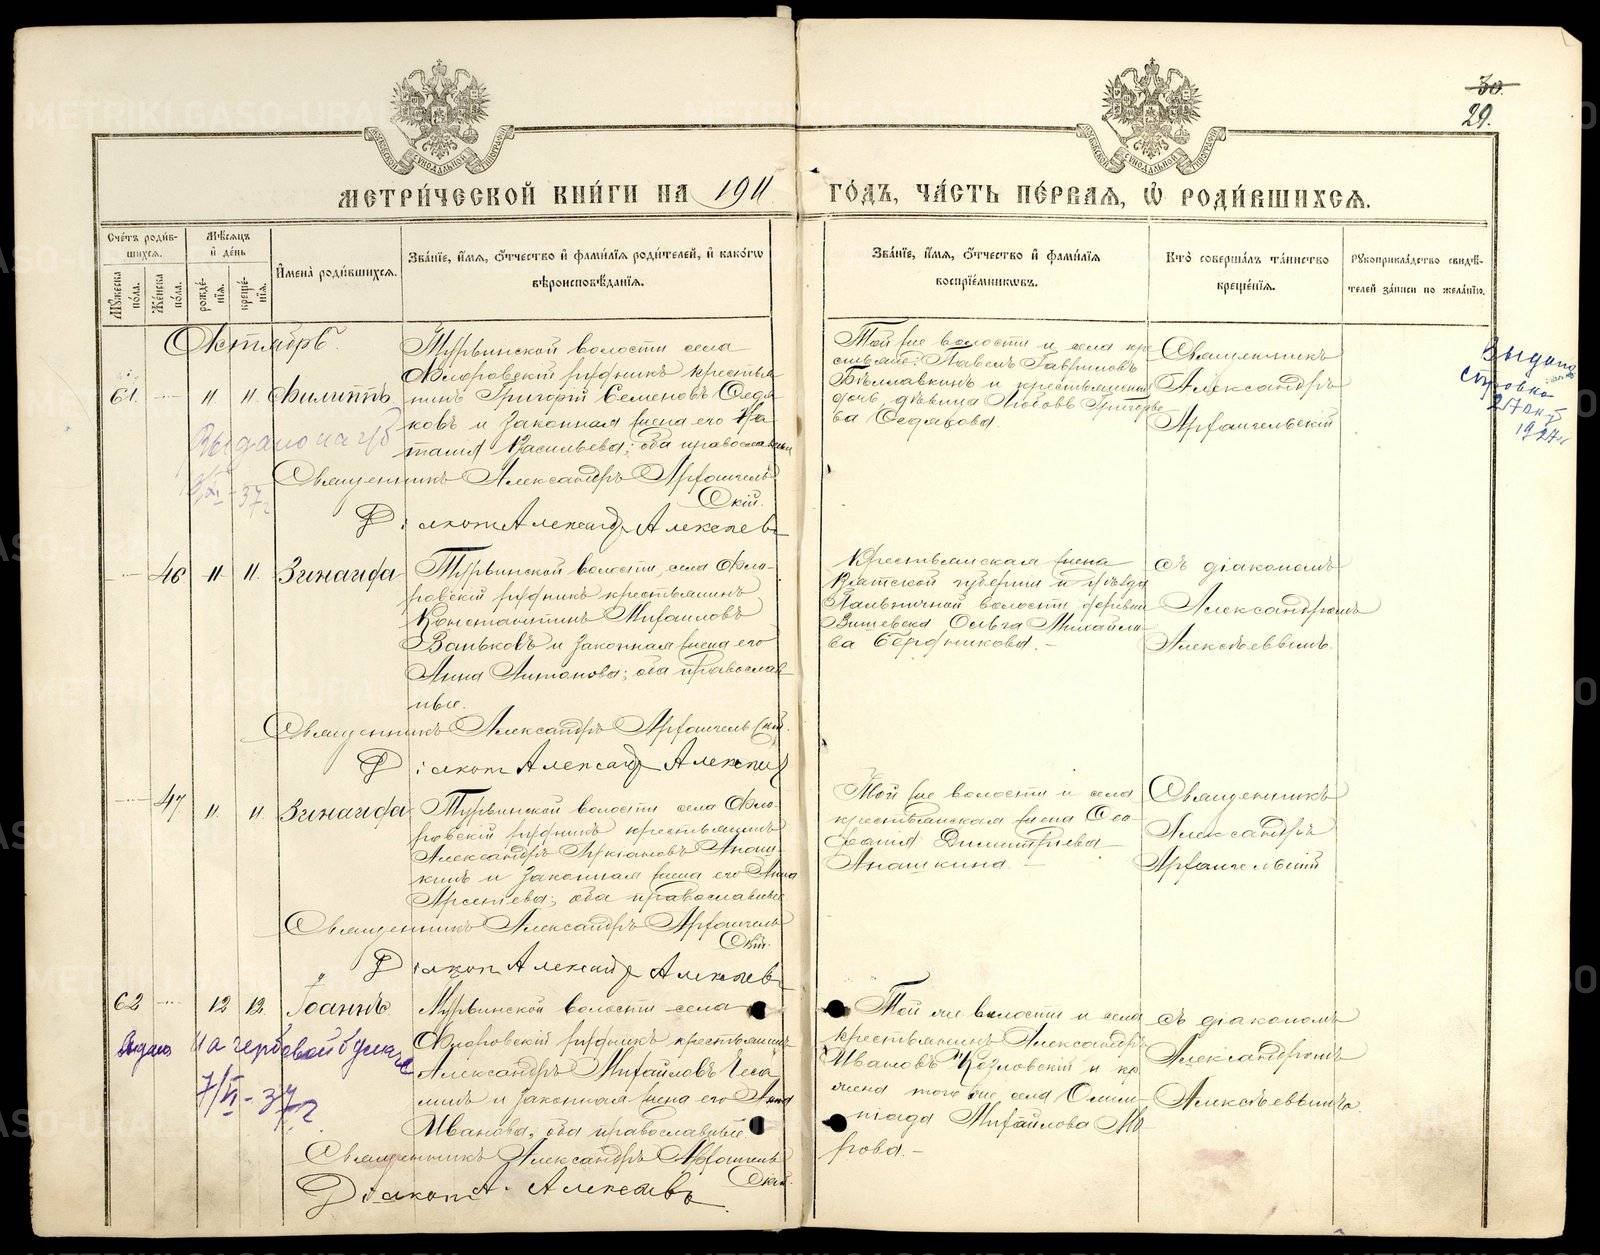 30.
29.
МЕТРИ́ЧЕСКОЙ КНИ́ГИ НА 1911
ГО́ДЪ, ЧА́СТЬ ПЕ́РВАЯ, Ѡ҆ РОДИ́ВШИХСЯ.
Сче́тъ роди́в-
шихся.
Мѣ́сяцъ
и҆ де́нь
Мꙋ́жеска по́ла.
Же́нска по́ла.
рожде́-
нїя.
креще́-
нїя.
И҆мена̀ роди́вшихся.
Зва́нїе, и҆́мя, ѻ҆́тчество и҆ фами́лїя роди́телей, и҆ како́гѡ
вѣроисповѣ́данїя.
Зва́нїе, и҆́мя, ѻ҆́тчество и҆ фами́лїя
воспрїе́мникѡвъ.
Кто̀ соверша́лъ та́инство
креще́нїя.
Рꙋкоприкла́дство свидѣ́-
телей за́писи по жела́нїю.
Октябрь.
61. 11 11 Филиппъ
Турьинской волости села
Фроловскій рудникъ крестья-
нинъ Григорій Семеновъ Седя-
ковъ и законная жена его На-
талія Васильева; оба православные
Священникъ Александръ Архангель
скій.
Діаконъ Александръ Алексѣевъ
Той же волости и села кре
стьяне: Павелъ Гавриловъ
и крестьянина
дочь, дѣвица Любовь Григорье
ва Седякова
Священникъ
Александръ
Архангельскій
Выдана
справка
1927 г.
Выдано на г/б
37 г.
46 11 11. Зинаида
Турьинской волости, села Фро-
ловскій рудникъ крестьянинъ
Константинъ Михайловъ
Ваньковъ и законная жена его
Анна Антонова; оба православ-
ные.
Священникъ Александръ Архангельскій.
Діаконъ Александръ Алексѣевъ
Крестьянская жена
Вятской губерніи и уѣзда
волости деревни
Ольга Михайло-
ва Бердникова. –
съ діакономъ
Александромъ
Алексѣевымъ.
47 11. 11. Зинаида
Турьинской волости села Фро-
ловскій рудникъ крестьянинъ
Александръ Анаш-
кинъ и законная жена его Анна
Арсеніева; оба православные
Священникъ Александръ Архангель
скій.
Діаконъ Александръ Алексѣевъ
Той же волости и села
крестьянская жена Ѳео-
Димитріева
Анашкина. –
Священникъ
Александръ
Архангельскій
62 12 12. Іоаннъ.
Турьинской волости села
Фроловскій рудникъ крестьянинъ
Александръ Михайловъ
и законная жена его Анна
Иванова, оба православные.
Священникъ Александръ Архангель
скій.
Діаконъ А. Алексѣевъ
Той же волости и села
крестьянинъ Александръ
Ивановъ Козловскій и кр
жена того же села Олим-
піада Михайлова
съ діакономъ
Александромъ
Алексѣевымъ.
Выдано на гербовой бумаге
7/VI - 37 г.